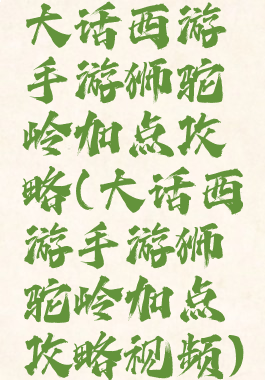 大话西游
手游狮驼
岭加点攻
略(大话西
游手游狮
驼岭加点
攻略视频)